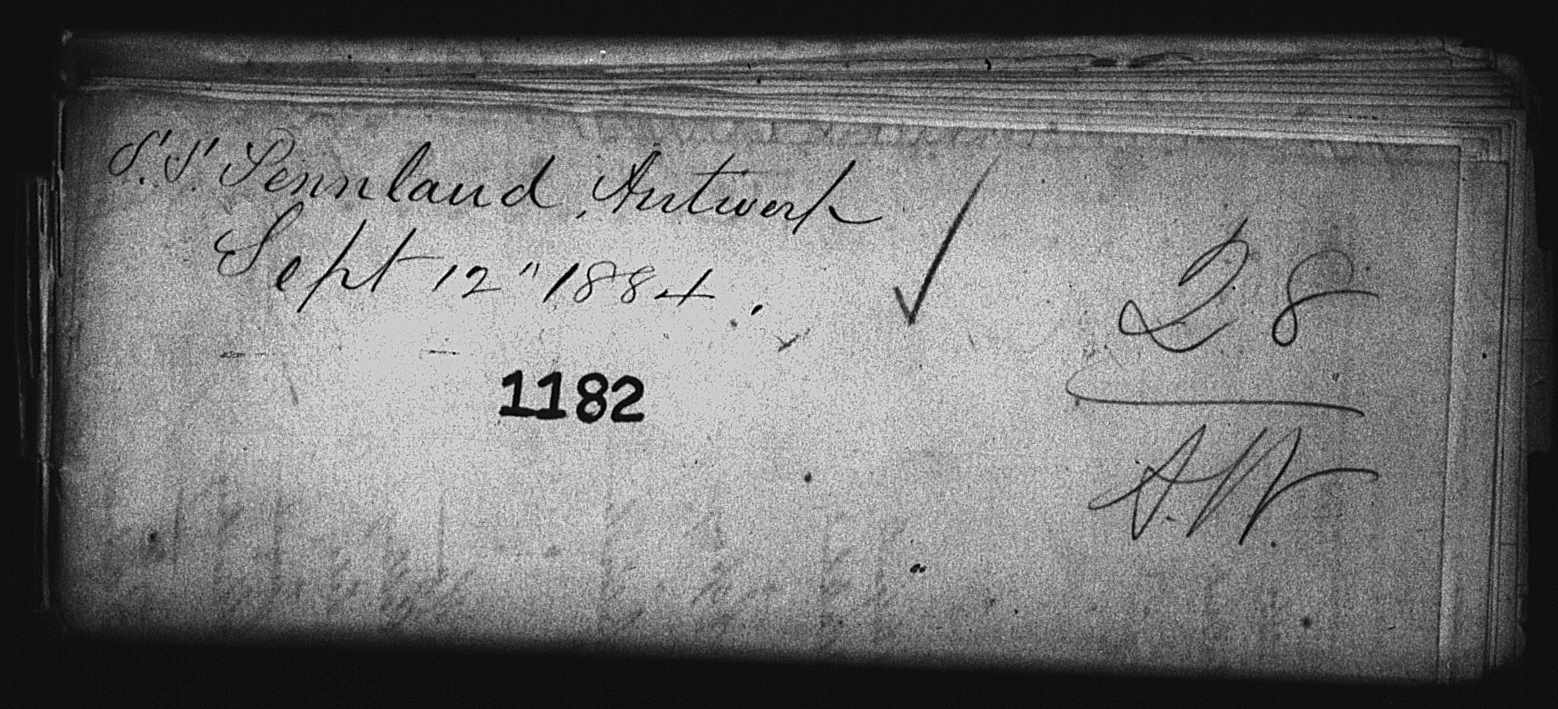 S.S. Pennland, Antwerp
Sept 12" 1884.
1182
28
A.W.